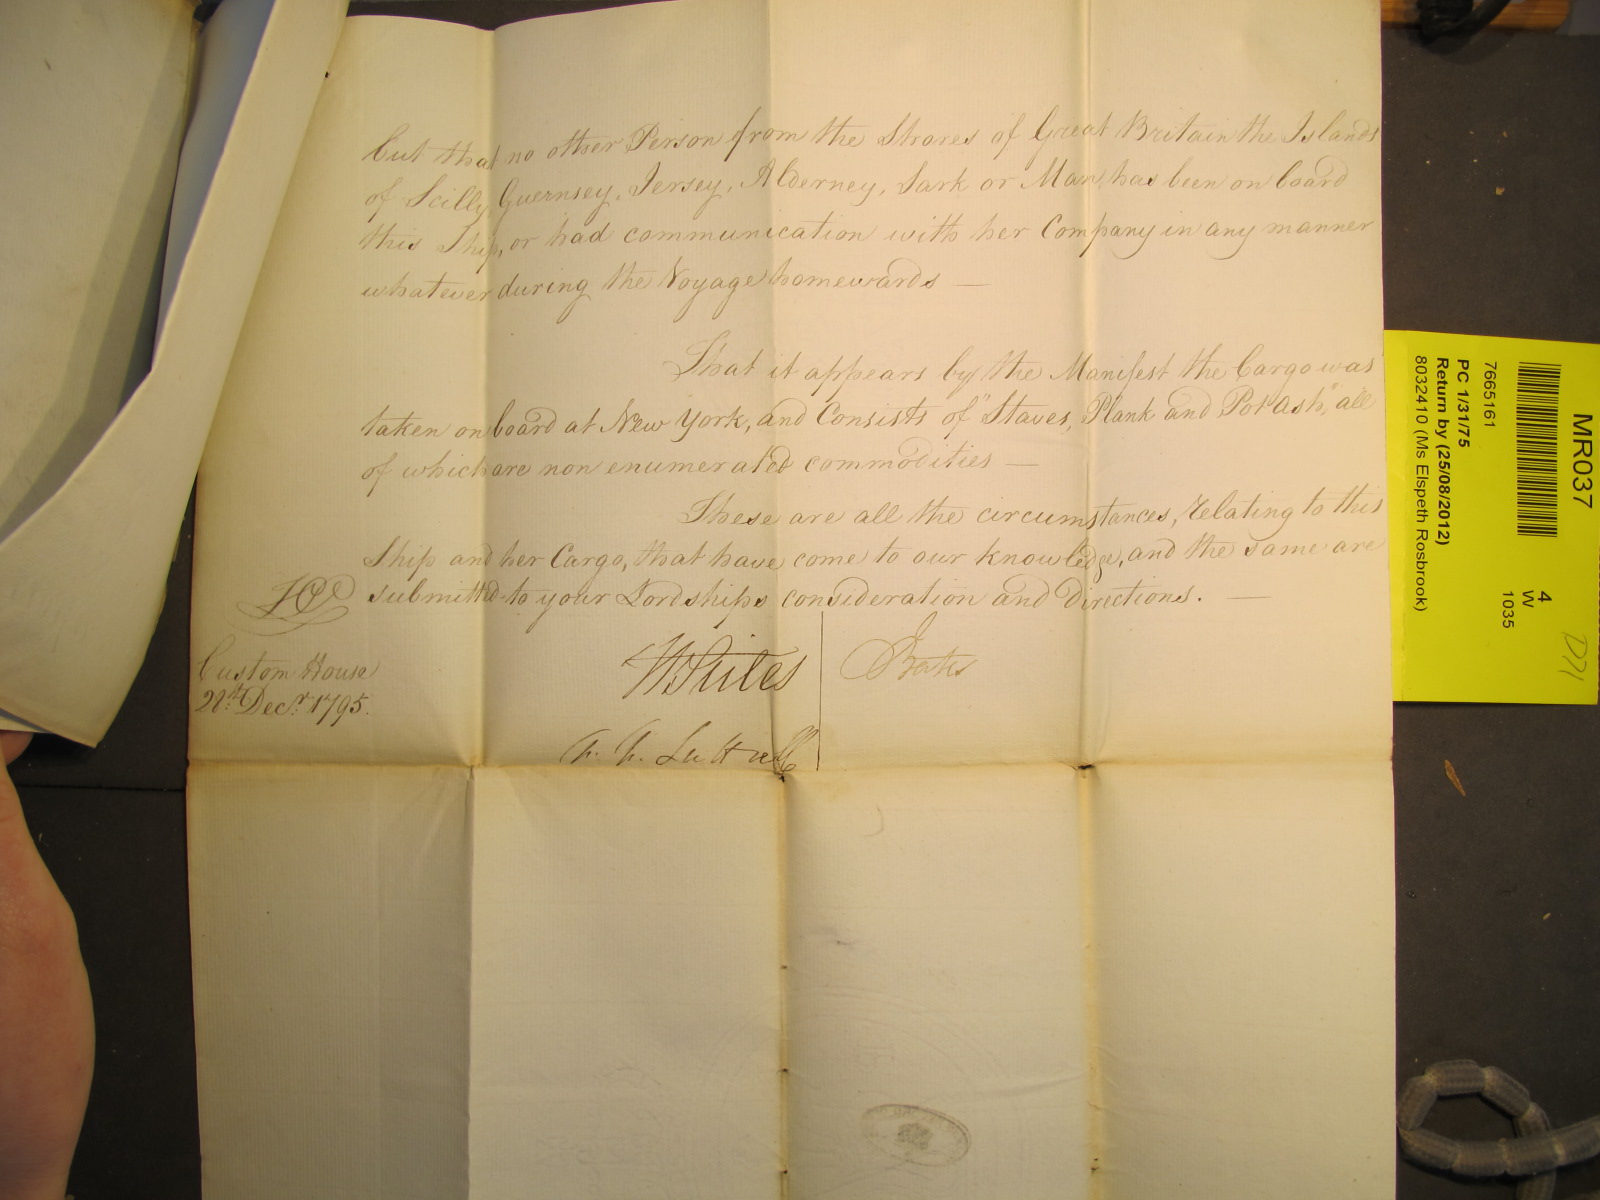 but that no other Person from the Shores of Great Britain the Islands
of Scilly, Guernsey, Jersey, Alderney, Sark or Man, has been on board
this Ship, or had communication with her Company in any manner
whatever during the Voyage homewards —
That it appears by the Manifest the Cargo was
taken on board at New York, and Consists of "Staves, Plank and Potash," all
of which are non enumerated commodities —
These are all the circumstances, relating to this
Ship and her Cargo, that have come to our knowledge, and the same are
submitted to your Lordships consideration and directions. —
Custom House
28th. Decr. 1795.
W Stiles
J Bates
F. F. Luttrell
MR037
7665161
PC 1/31/75
Return by (25/08/2012)
8032410 (Ms Elspeth Rosbrook)
4
W
1035
D71